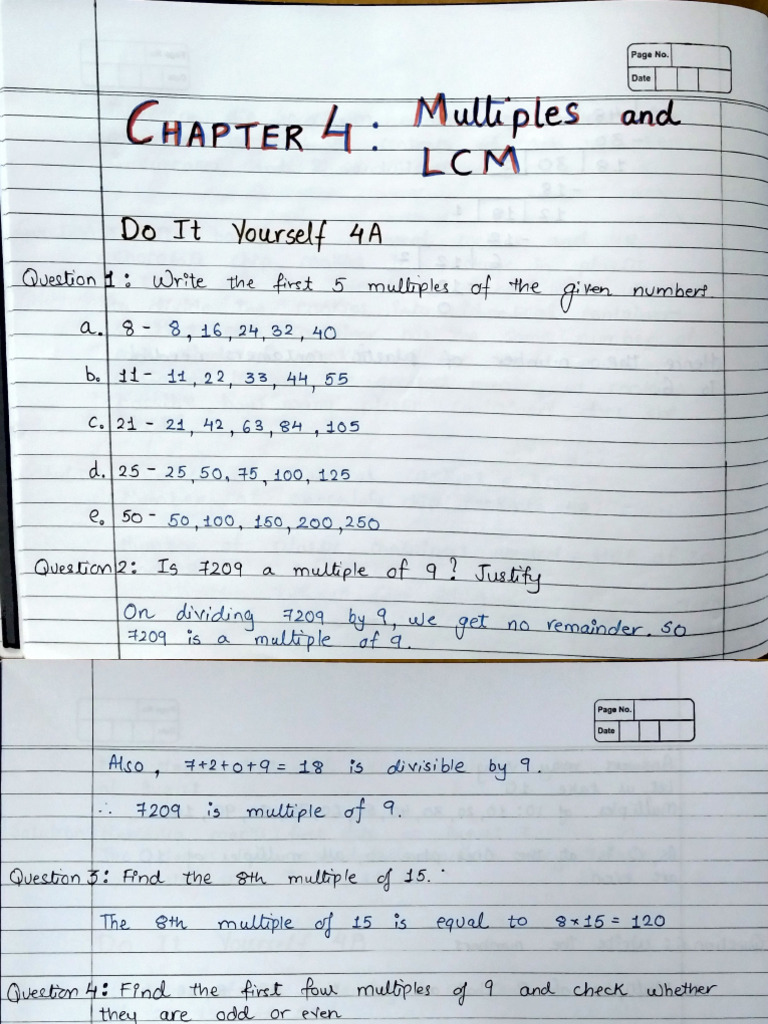 Page No.
Date
CHAPTER 4: Multiples and
LCM
Do It Yourself 4A
Question 1: Write the first 5 multiples of the given numbers.
a. 8 - 8, 16, 24, 32, 40
b. 11 - 11, 22, 33, 44, 55
c. 21 - 21, 42, 63, 84, 105
d. 25 - 25, 50, 75, 100, 125
e. 50 - 50, 100, 150, 200, 250
Question 2: Is 7209 a multiple of 9? Justify
On dividing 7209 by 9, we get no remainder. So
7209 is a multiple of 9.
Page No.
Date
Also, 7+2+0+9 = 18 is divisible by 9.
∴ 7209 is multiple of 9.
Question 3: Find the 8th multiple of 15.
The 8th multiple of 15 is equal to 8×15 = 120
Question 4: Find the first four multiples of 9 and check whether
they are odd or even